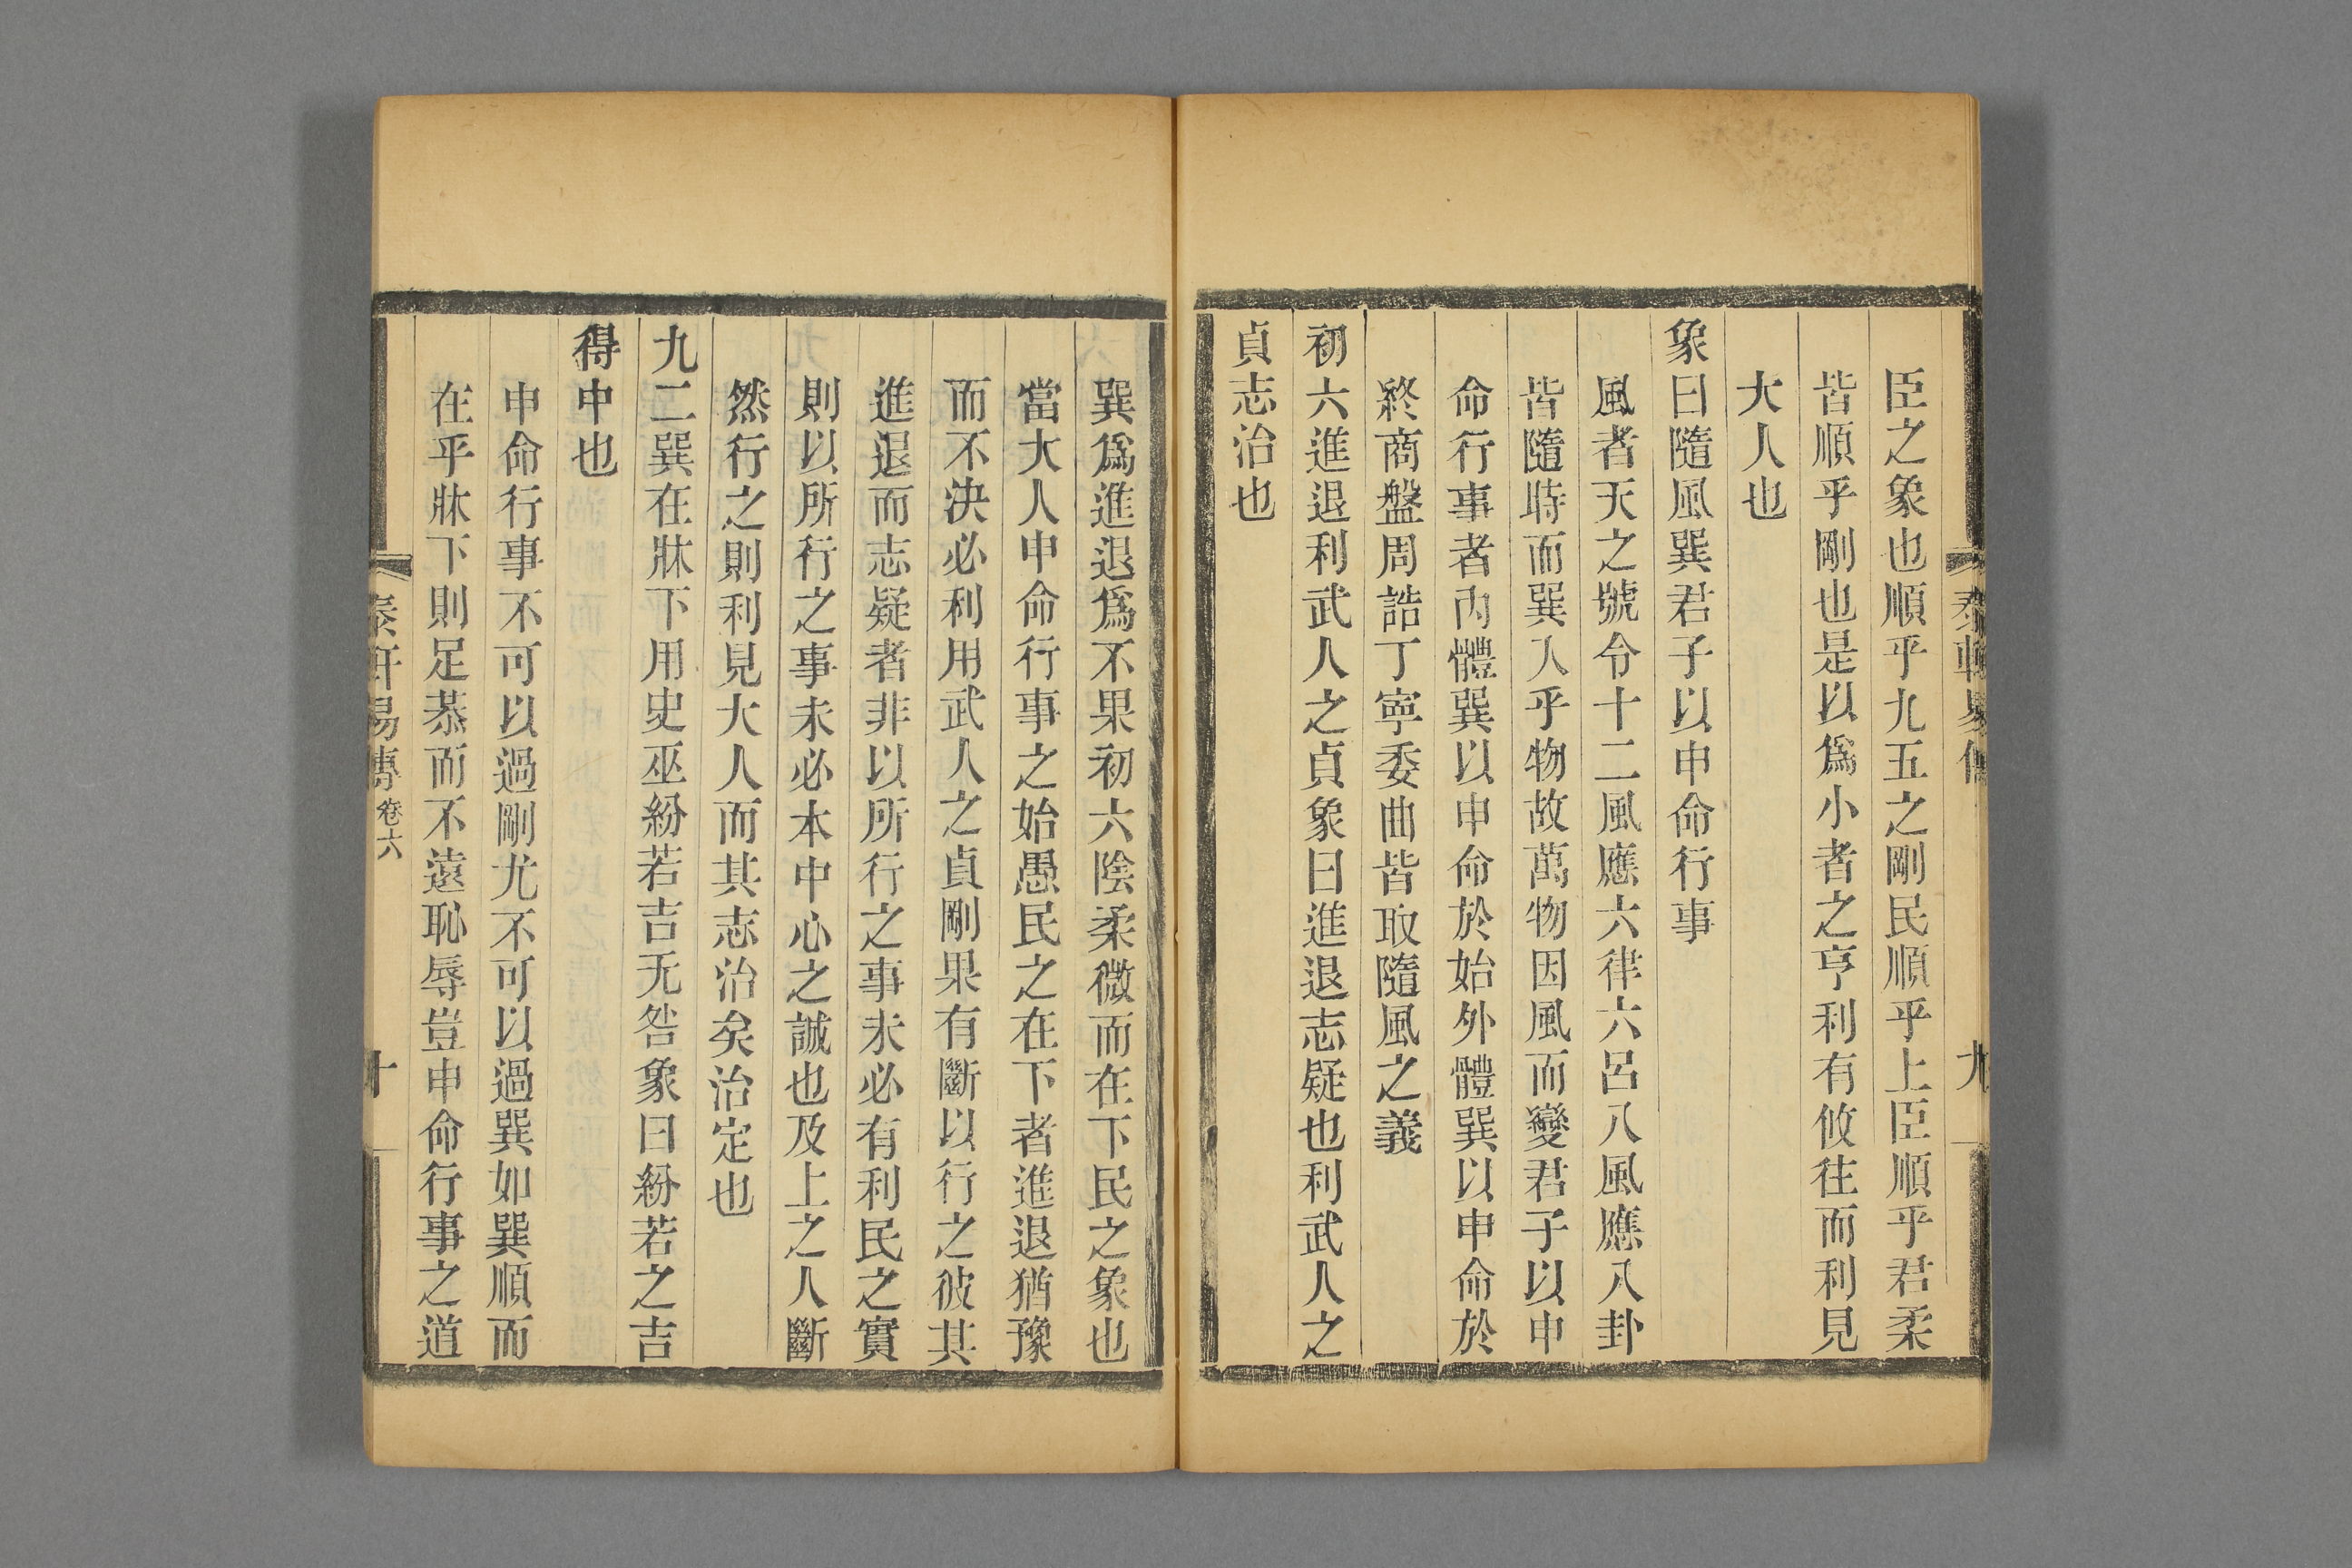 臣之象也順乎九五之剛民順乎上臣順乎君柔
皆順乎剛也是以爲小者之亨利有攸往而利見
大人也
象曰隨風巽君子以申命行事
風者天之號令十二風應六律六呂八風應八卦
皆隨時而巽入乎物故萬物因風而變君子以申
命行事者內體巽以申命於始外體巽以申命於
終商盤周誥丁寧委曲皆取隨風之義
初六進退利武人之貞象曰進退志疑也利武人之
貞志治也
九
巽爲進退爲不果初六陰柔微而在下民之象也
當大人申命行事之始愚民之在下者進退猶豫
而不決必利用武人之貞剛果有斷以行之彼其
進退而志疑者非以所行之事未必有利民之實
則以所行之事未必本中心之誠也及上之人斷
然行之則利見大人而其志治矣治定也
九二巽在牀下用史巫紛若吉无咎象曰紛若之吉
得中也
申命行事不可以過剛尤不可以過巽如巽順而
在乎牀下則足恭而不遠恥辱豈申命行事之道
易傳卷六
十